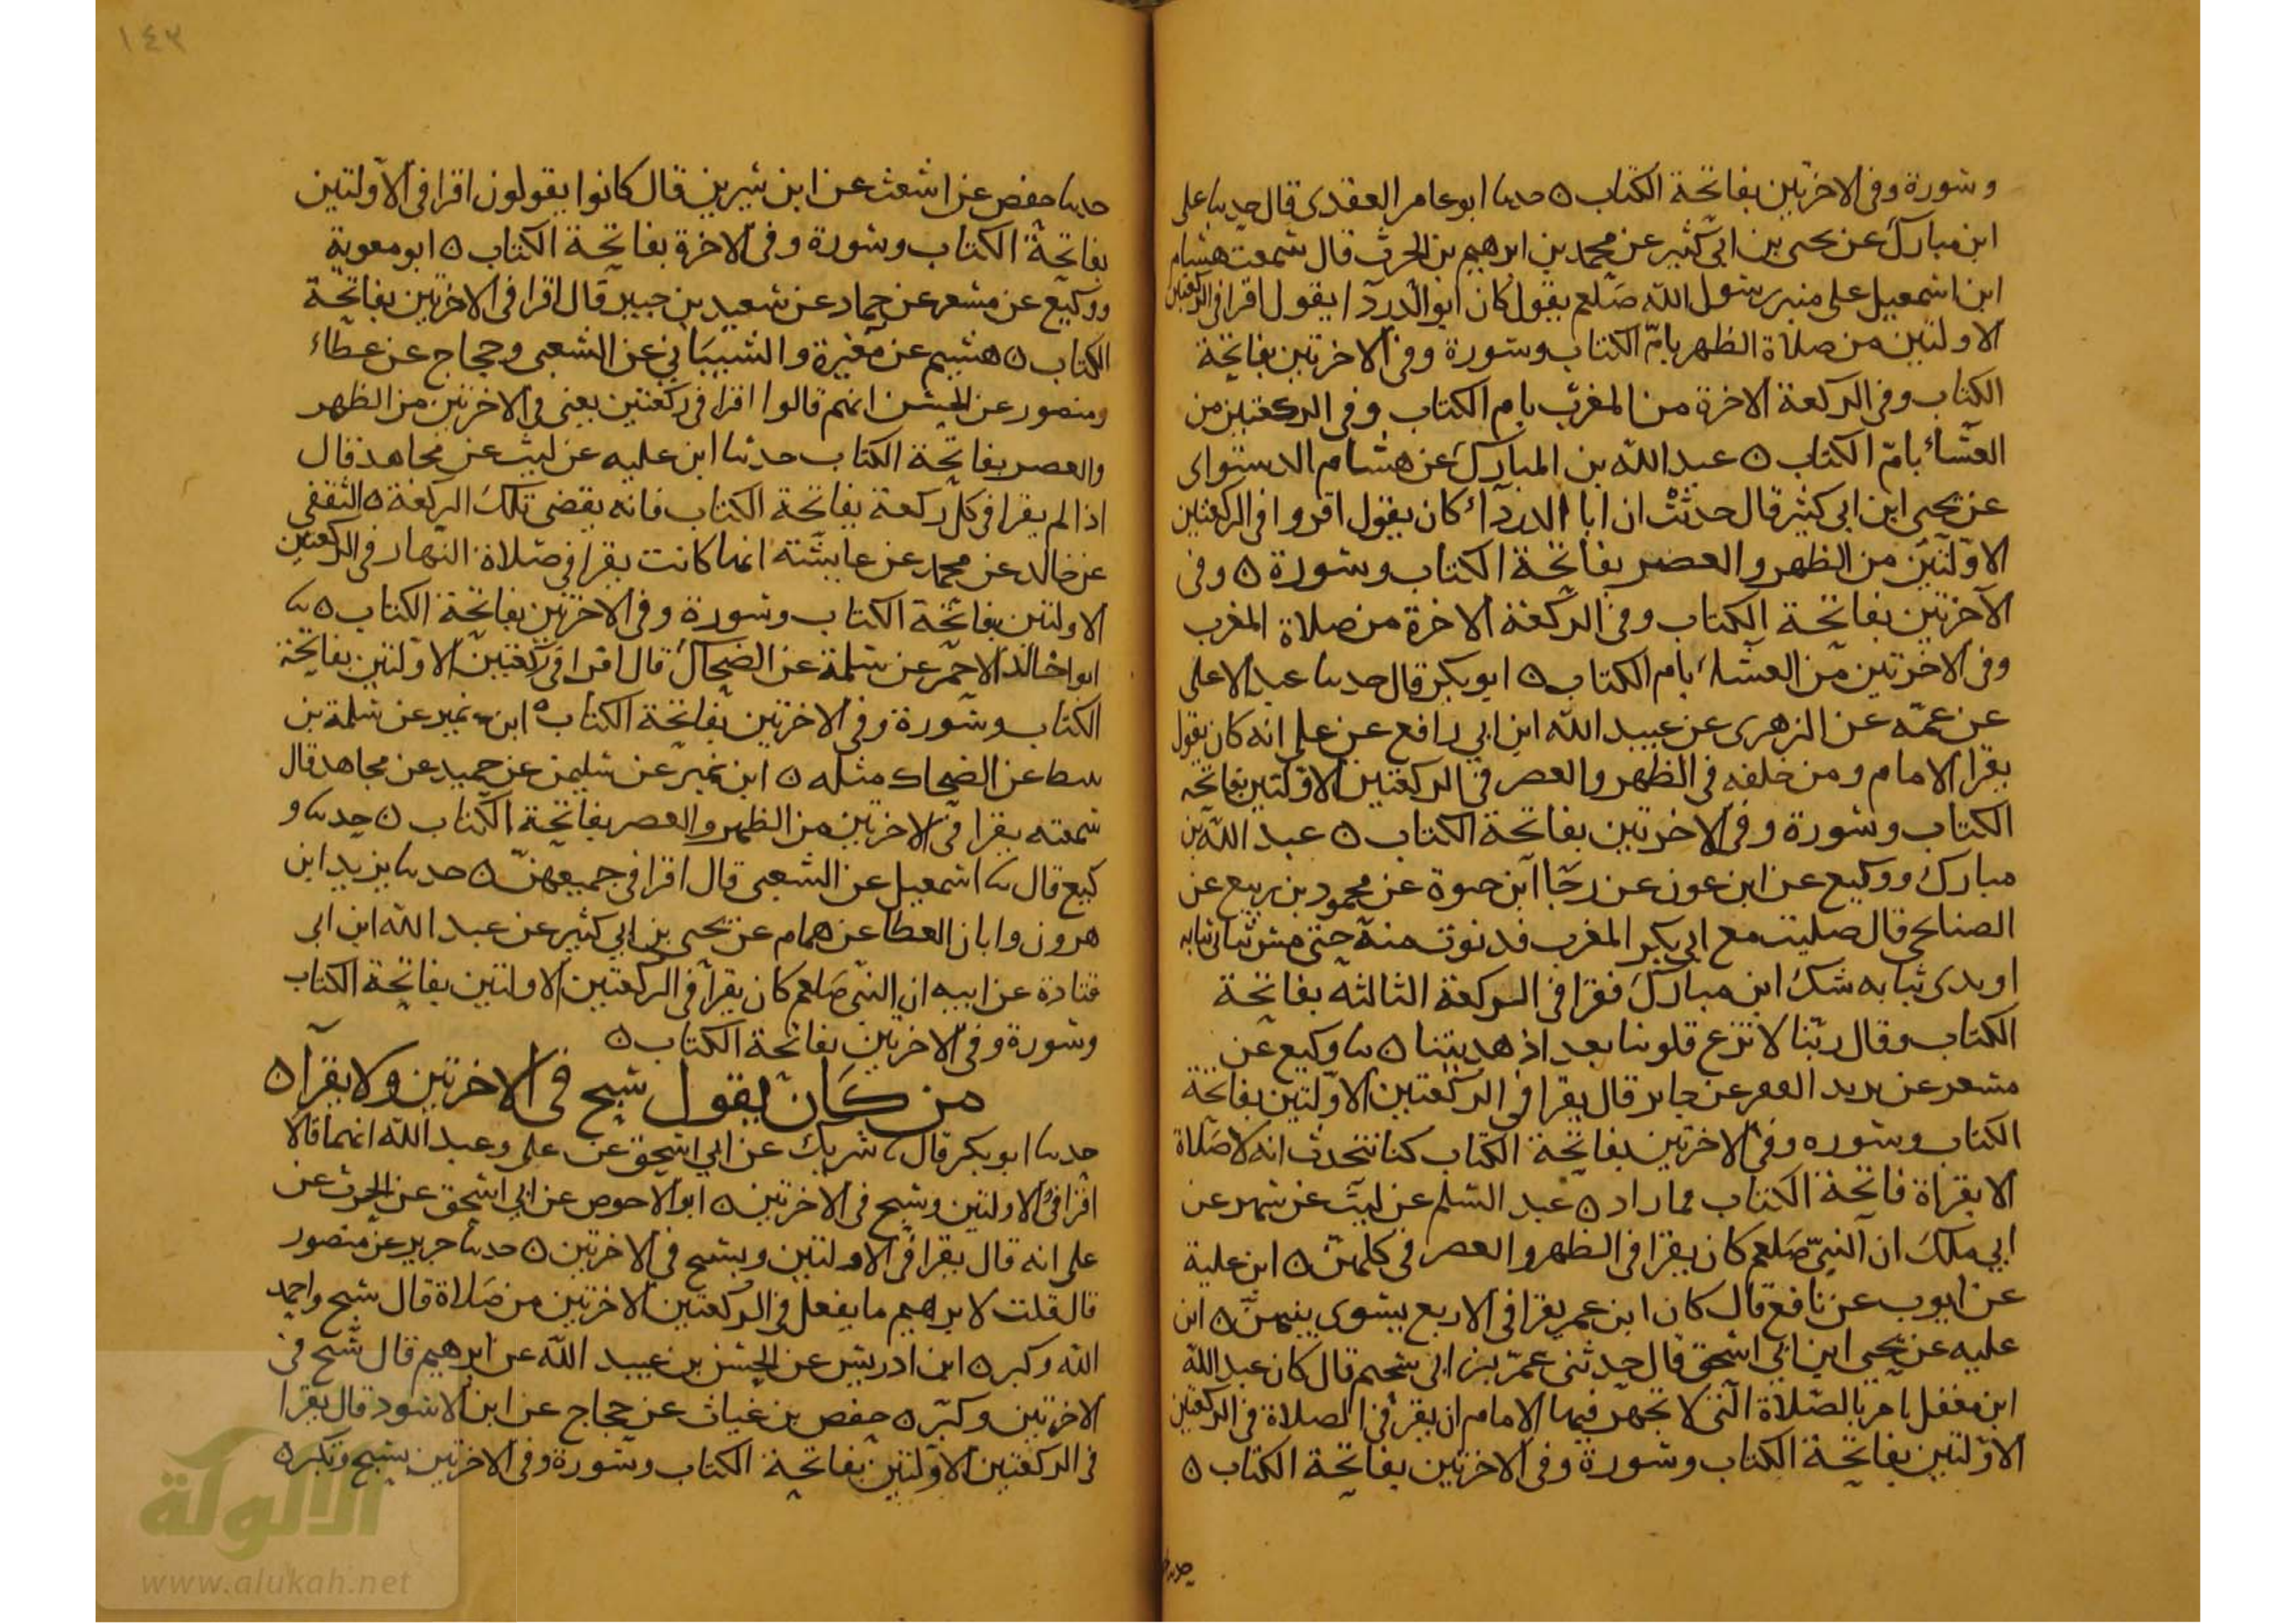 وسورة وفي الاخرتين بفاتحة الكتاب ٥ حدثنا ابو عامر العقدى قال حدثنا على
ابن مبارك عن يحيى بن ابي كثير عن محمد بن ابرهيم بن الحرث قال سمعت هشام
ابن اسمعيل على منبر رسول الله صلعم يقول كان ابو الدردا يقول اقرا في الركعتين
الاولتين من صلاة الظهر بامّ الكتاب وسورة وفي الاخرتين بفاتحة
الكتاب وفي الركعة الاخرة من المغرب بام الكتاب وفي الركعتين من
العشاء بامّ الكتاب ٥ عبد الله بن المبارك عن هشام الدستواى
عن يحيى ابن ابي كثير قال حدثت ان ابا الدرداء كان يقول اقروا في الركعتين
الاولتين من الظهر والعصر بفاتحة الكتاب وسورة ٥ وفي
الآخرتين بفاتحة الكتاب وفي الركعة الاخرة من صلاة المغرب
وفي الاخرتين من العشاء بام الكتاب ٥ ابو بكر قال حدثنا عبد الاعلى
عن عمّه عن الزهرى عن عبيد الله ابن ابي رافع عن على انه كان يقول
يقرا الامام ومن خلفه في الظهر والعصر في الركعتين الاولتين بفاتحه
الكتاب وسورة وفي الاخرتين بفاتحة الكتاب ٥ عبد الله بن
مبارك ووكيع عن ابن عون عن رجا ابن حيوة عن محمود بن ربيع عن
الصنابحى قال صليت مع ابي بكر المغرب فدنوت منه حتى مس ثيابى ثيابه
او يدى ثيابه شك ابن مبارك فقرا في الركعة الثالثه بفاتحة
الكتاب وقال ربّنا لا تزغ قلوبنا بعد اذ هديتنا ٥ ثنا وكيع عن
مسعر عن يزيد الفقير عن جابر قال يقرا في الركعتين الاولتين بفاتحة
الكتاب وسوره وفي الاخرتين بفاتحة الكتاب كنا نتحدث انه لا صلاة
الا بقراة فاتحة الكتاب فما زاد ٥ عبد السلم عن ليث عن شهر عن
ابي ملك ان النبىّ صلعم كان يقرا في الظهر والعصر في كلهنّ ٥ ابن علية
عن ايوب عن نافع قال كان ابن عمر يقرا في الاربع يسوى بينهنّ ٥ ابن
عليه عن يحيى ابن ابي اسحق قال حدثنى عمر بن ابي سحيم قال كان عبد الله
ابن مغفل يامر بالصلاة التى لا يجهر فيها الامام ان يقرا في الصلاة في الركعتين
الاولتين بفاتحة الكتاب وسورة وفي الاخرتين بفاتحة الكتاب ٥
١٤٢
حدثنا حفص عن اشعث عن ابن سيرين قال كانوا يقولون اقرا في الاولتين
بفاتحة الكتاب وسورة وفي الاخرة بفاتحة الكتاب ٥ ابو معوية
ووكيع عن مسعر عن حماد عن سعيد بن جبير قال اقرا في الاخرتين بفاتحة
الكتاب ٥ هشيم عن مغيرة والشيبانى عن الشعبى وحجاج عن عطاء
ومنصور عن الحسن انهم قالوا اقرا في ركعتين يعنى في الاخرتين من الظهر
والعصر بفاتحة الكتاب حدثنا ابن عليه عن ليث عن مجاهد قال
اذا لم يقرا في كل ركعة بفاتحة الكتاب فانه يقضى تلك الركعة ٥ الثقفى
عن خالد عن محمد عن عايشة انها كانت يقرا في صلاة النهار في الركعتين
الاولتين بفاتحة الكتاب وسورة وفي الاخرتين بفاتحة الكتاب ٥ ثنا
ابوا خالد الاحمر عن سلمة عن الضحاك قال اقرا في ركعتين الاولتين بفاتحة
الكتاب وسورة وفي الاخرتين بفاتحة الكتاب ٥ ابن نمير عن سلمة بن
نبيط عن الضحاك مثله ٥ ابن نمير عن سليمن عن حميد عن مجاهد قال
سمعته يقرا في الاخرتين من الظهر والعصر بفاتحة الكتاب ٥ حدثنا و
كيع قال ثنا اسمعيل عن الشعبى قال اقرا في جميعهنّ ٥ حدثنا يزيد ابن
هرون وابان العطا عن همام عن يحيى بن ابي كثير عن عبد الله ابن ابى
قتادة عن ابيه ان النبى صلعم كان يقرا في الركعتين الاولتين بفاتحة الكتاب
وسورة وفي الاخرتين بفاتحة الكتاب ٥
من كان يقول سبح في الاخرتين ولا يقرا ٥
حدثنا ابو بكر قال ثنا شريك عن ابي اسحق عن على وعبد الله انهما قالا
اقرا في الاولتين وسبح في الاخرتين ٥ ابو الاحوص عن ابي اسحق عن الحرث عن
على انه قال يقرا في الاولتين ويسبح في الاخرتين ٥ حدثنا جرير عن منصور
قال قلت لابرهيم ما يفعل في الركعتين الاخرتين من صلاة قال سبح واحمد
الله وكبر ٥ ابن ادريس عن الحسن بن عبيد الله عن ابرهيم قال سبح في
الاخرتين وكبّر ٥ حفص بن غياث عن حجاج عن ابن الاسود قال يقرا
في الركعتين الاولتين بفاتحة الكتاب وسورة وفي الاخرتين يسبح وتكبر ٥
الألوكة
www.alukah.net